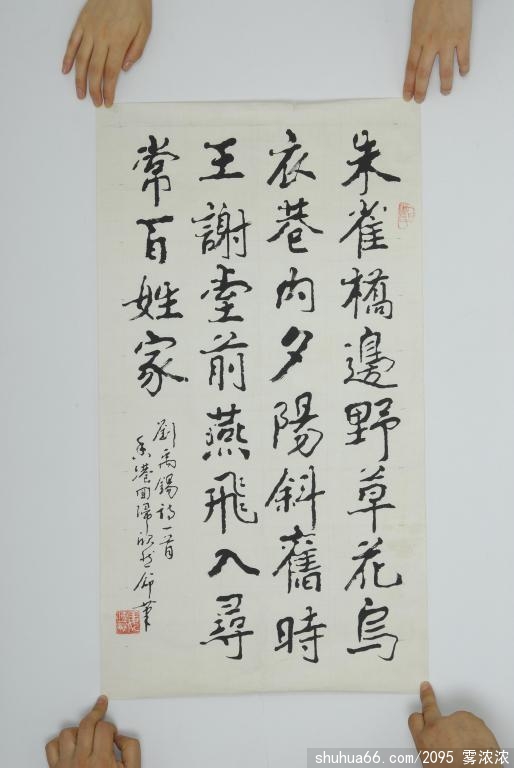 朱雀橋邊野草花烏
衣巷内夕陽斜舊時
王謝堂前燕飛入尋
常百姓家
劉禹錫詩一首
香港回歸欣然命筆
shuhua66.com/2095 雾浓浓